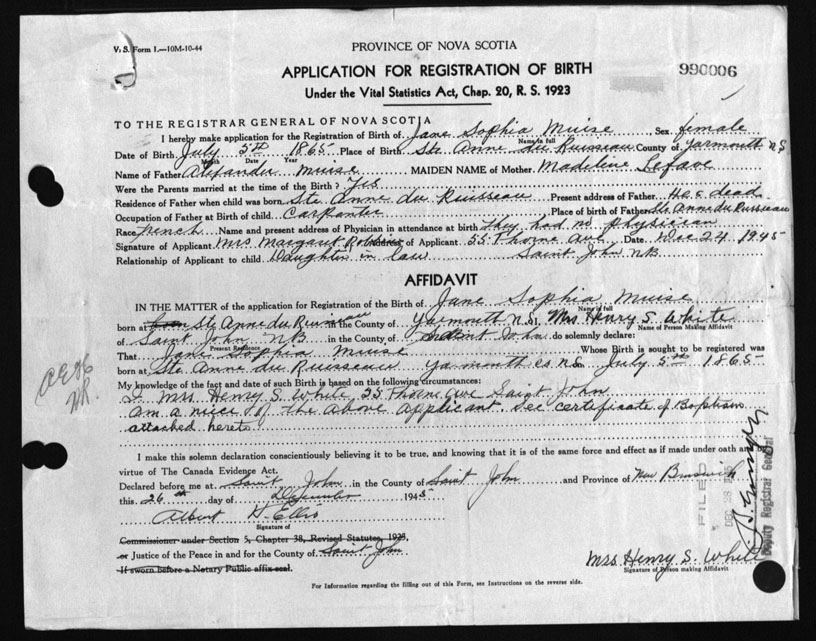 V. S. Form 1.—10M-10-44
PROVINCE OF NOVA SCOTIA
APPLICATION FOR REGISTRATION OF BIRTH
Under the Vital Statistics Act, Chap. 20, R. S. 1923
990006
TO THE REGISTRAR GENERAL OF NOVA SCOTIA
I hereby make application for the Registration of Birth of Jane Sophia Muise Sex female
Name in full
Date of Birth July 5th 1865 Place of Birth Ste Anne du Ruisseau County of Yarmouth N.S.
Month Date Year
Name of Father Alexander Muise MAIDEN NAME of Mother Madeline Lefave
Were the Parents married at the time of the Birth? Yes
Residence of Father when child was born Ste Anne du Ruisseau Present address of Father He is dead
Occupation of Father at Birth of child Carpanter Place of birth of Father Ste Anne du Ruisseau
Race french Name and present address of Physician in attendance at birth They had no physician
Signature of Applicant Mrs Margaret of Applicant 55 Thorne Ave Date Dec 24 1945
Relationship of Applicant to child Daughter in law Saint John NB
AFFIDAVIT
IN THE MATTER of the application for Registration of the Birth of Jane Sophia Muise
Name in full
born at Ste Anne du Ruisseau in the County of Yarmouth N.S. I, Mrs Henry S. White
Name of Person Making Affidavit
of Saint John NB in the County of Saint John do solemnly declare:
Present Residence
That Jane Sophia Muise Whose Birth is sought to be registered was
born at Ste Anne du Ruisseau Yarmouth co N.S. on July 5th 1865
My knowledge of the fact and date of such Birth is based on the following circumstances:
I Mrs Henry S. White, 55 Thorne Ave Saint John
Am a niece of the above applicant. See certificate of Baptism
attached hereto
I make this solemn declaration conscientiously believing it to be true, and knowing that it is of the same force and effect as if made under oath and by
virtue of The Canada Evidence Act.
Declared before me at Saint John in the County of Saint John and Province of New Brunswick
this 26th day of December 1945
Albert H. Ellis
Signature of
Commissioner under Section 5, Chapter 38, Revised Statutes, 1923,
or Justice of the Peace in and for the County of Saint John
If sworn before a Notary Public affix seal.
Mrs Henry S. White
Signature of Person making Affidavit
For Information regarding the filling out of this Form, see Instructions on the reverse side.
FILED
Deputy Registrar General